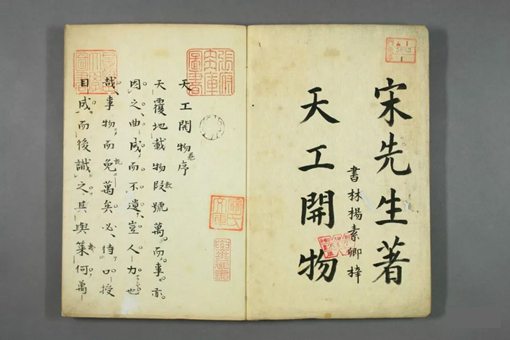 宋先生著
書林楊素卿梓
天工開物
天工開物卷序
天覆地載物段號萬而事亦
因之曲成而不遺豈人力也
哉事物而免萬矣必待口授
目成而後識之其與何萬